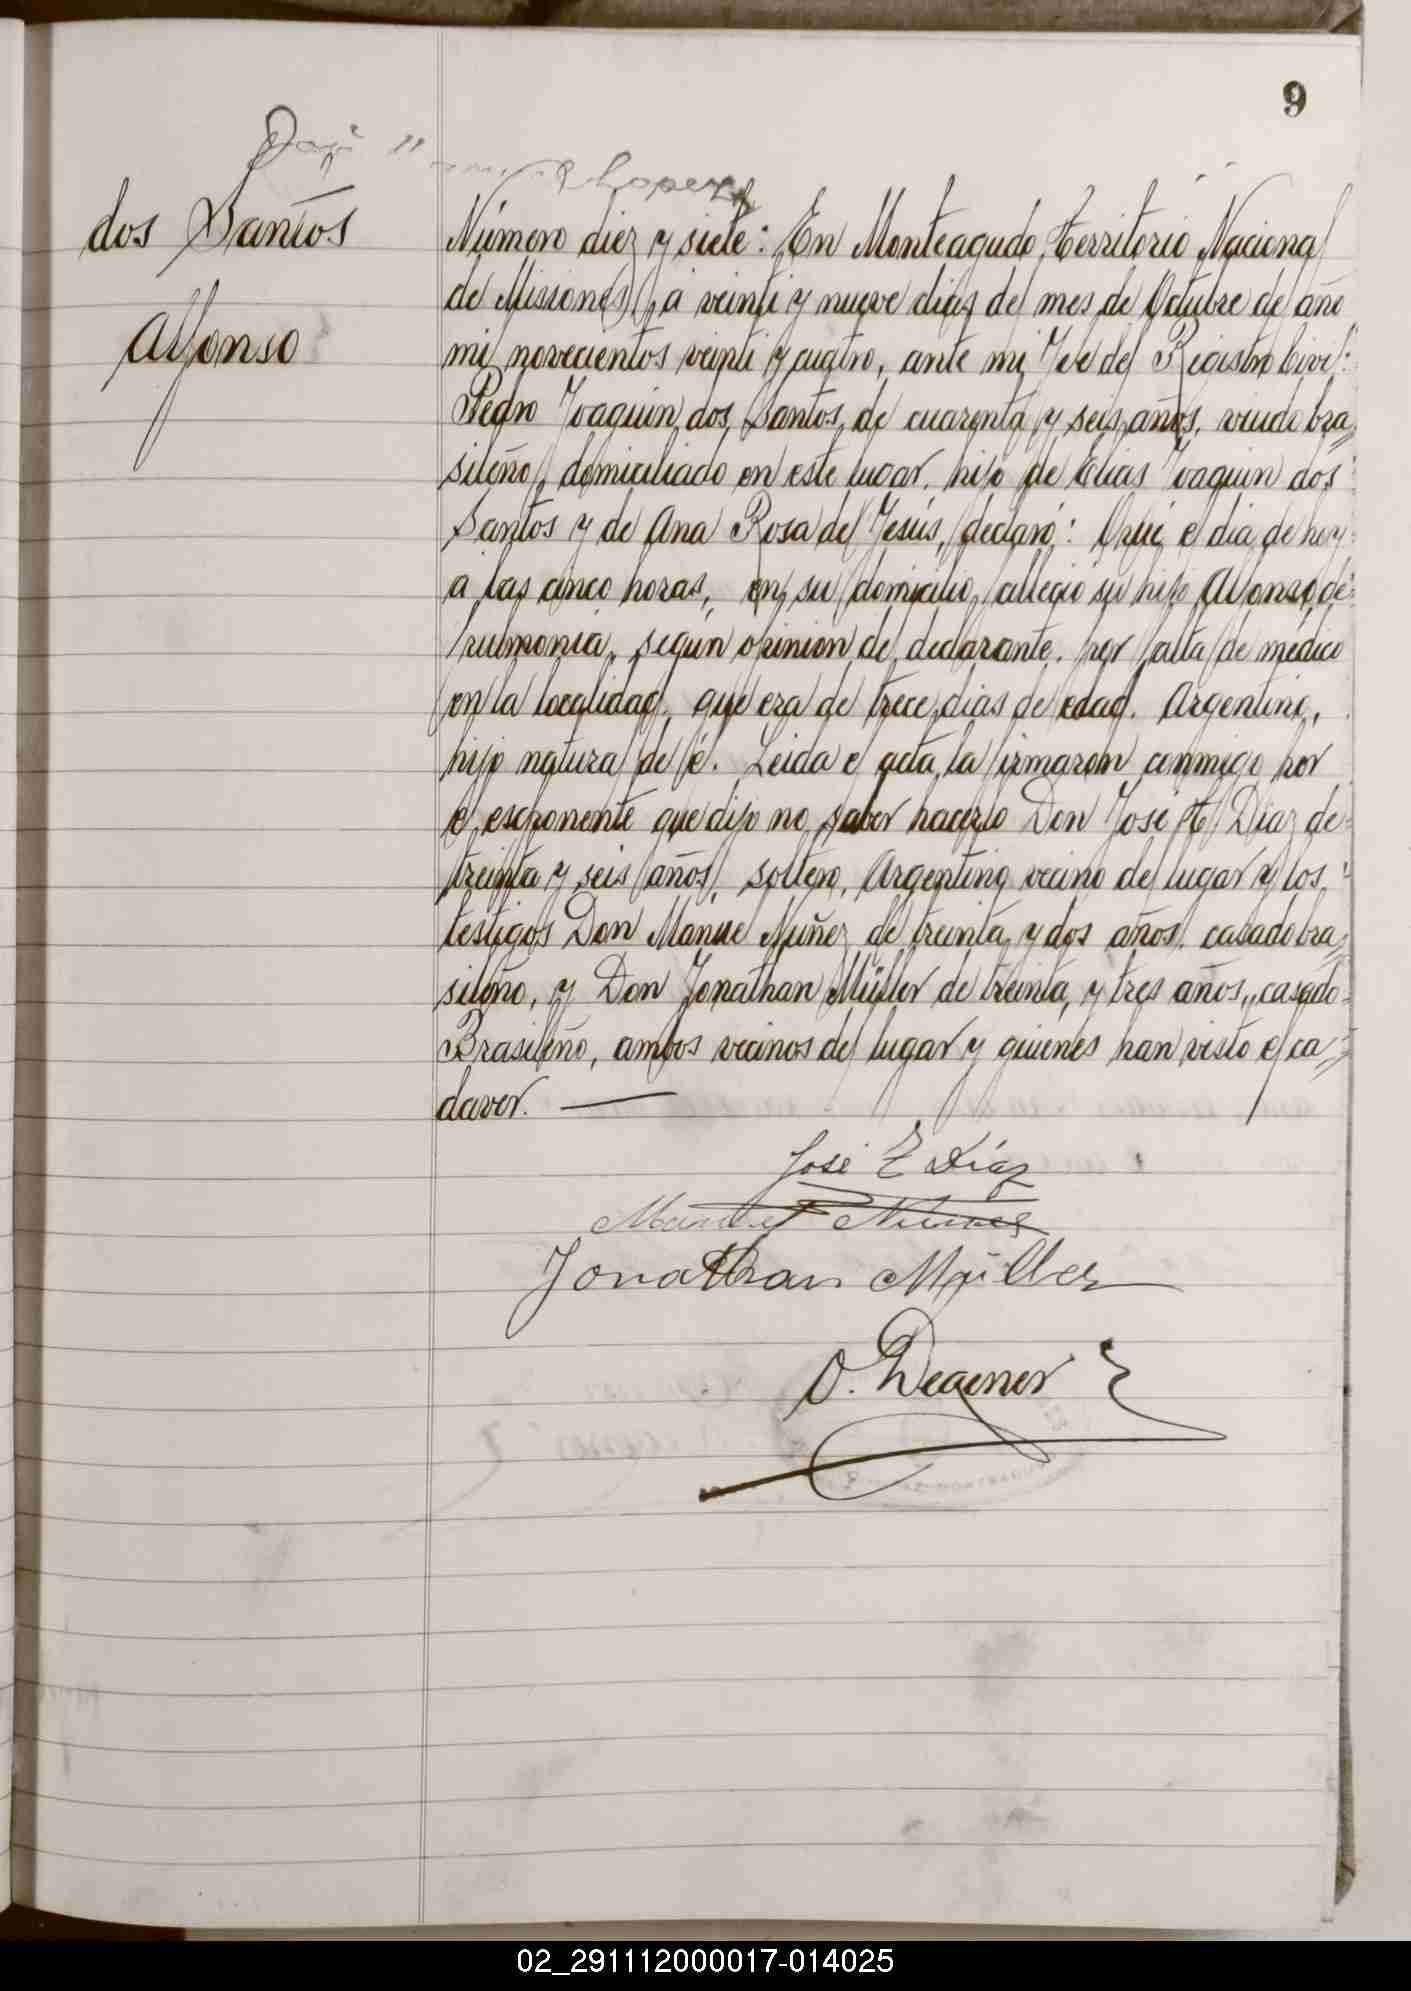 9
dos Santos
Alfonso
Número diez y siete: En Monteagudo, Territorio Nacional
de Misiones, a veinti y nueve dias del mes de Octubre del año
mil novecientos veinti y cuatro, ante mi, Jefe del Registro Civil:
Pedro Joaquin dos Santos, de cuarenta y seis años, viudo bra=
sileño, domiciliado en este lugar, hijo de Elias Joaquin dos
Santos y de Ana Rosa de Jesús, declaró: Que el dia de hoy
a las cinco horas, en su domicilio, fallecio su hijo Alfonso, de
pulmonia, según opinion del declarante, por falta de médico
en la localidad, que era de trece dias de edad, Argentino,
hijo natural de él. Leida el acta, la firmaron conmigo por
el exponente que dijo no saber hacerlo Don José E. Diaz de
treinta y seis años, soltero, Argentino, vecino del lugar y los
testigos Don Manuel Nuñez de treinta y dos años, casado bra=
sileño, y Don Jonathan Müller de treinta y tres años, casado
Brasileño, ambos vecinos del lugar y quienes han visto el ca=
daver.
José E Díaz
Manuel Nunes
Jonathan Müller
O. Degener
02_291112000017-014025